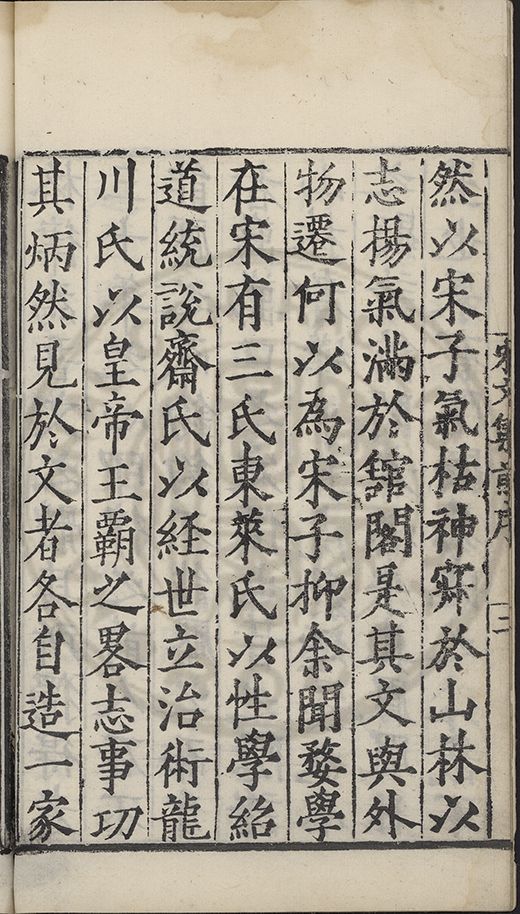 然以宋子氣枯神寂於山林以
志揚氣滿於舘閣是其文與外
物遷何以為宋子抑余聞婺學
在宋有三氏東萊氏以性學紹
道統說齋氏以経世立治術龍
川氏以皇帝王覇之畧志事功
其炳然見於文者各自造一家
宋文集前序 三